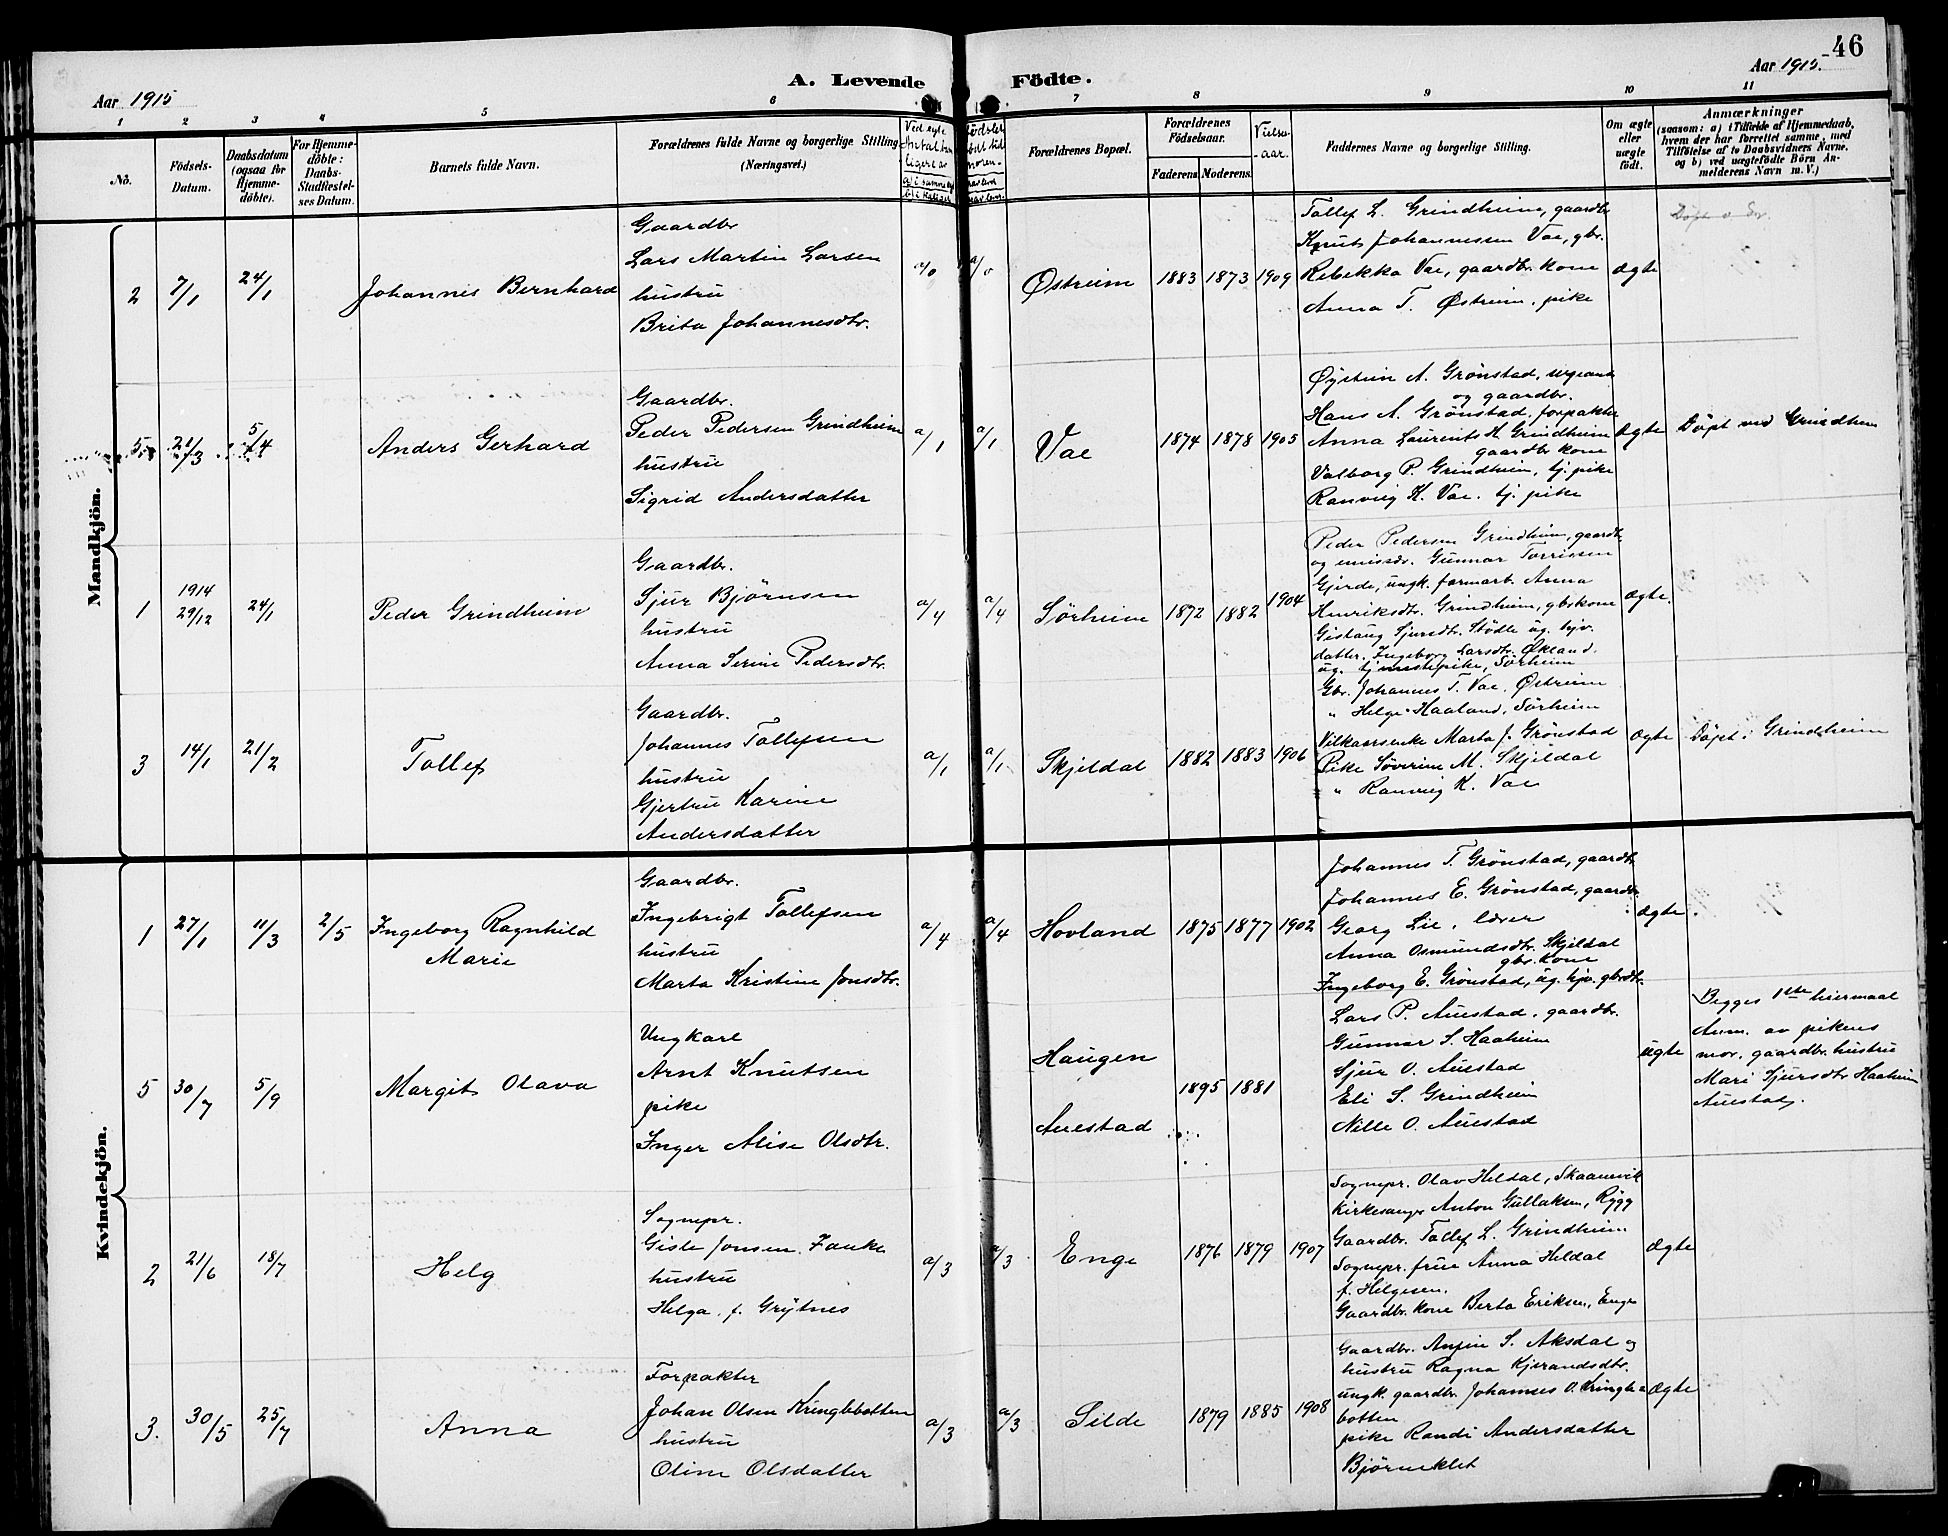 46
A. Levende Födte.
Aar 1915
Aar 1915.
1 2 3 4 5 6 7 8 9 10 11
No.
Födsels-Datum.
Daabsdatum (ogsaa for Hjemmedöbte).
For Hjemmedöbte: Daabs-Stadfæstelses Datum.
Barnets fulde Navn.
Forældrenes fulde Navne og borgerlige Stilling (Næringsvei.)
Forældrenes Bopæl.
Forældrenes Födselsaar.
Faderens. Moderens.
Vielsesaar.
Faddernes Navne og borgerlige Stilling.
Om ægte eller uægte födt.
Anmærkninger
(saasom: a) i Tilfælde af Hjemmedaab, hvem der har forrettet samme, med Tilföielse af to Daabsvidners Navne, og b) ved uægtefödte Börn Anmelderens Navn m. V.)
Mandkjön.
2 7/1 24/1 Johannes Bernhard
Gaardbr.
Lars Martin Larsen
hustru
Brita Johannesdtr.
a/0 a/0 Østreim 1883 1873 1909
Tollef L. Grindheim, gaardbr.
Knut Johannessen Vae, gbr.
Rebekka Vae, gaardbr. kone
Anna T. Østreim, pike
ægte
5 21/3 5/4 Anders Gerhard
Gaardbr.
Peder Pedersen Grindheim
hustru
Sigrid Andersdatter
a/1 a/1 Vae 1874 1878 1905
Øystein A. Grønstad, sergeant
og gaardbr.
Hans A. Grønstad, forpakter
Anna Laurents H. Grindheim
gaardbr. kone
Valborg P. Grindheim, tj. pike
Ranveig K. Vae, tj. pike
ægte
Døpt ved Grindheim
1 1914 29/12 24/1 Peder Grindheim
Gaardbr.
Sjur Bjørnsen
hustru
Anna Serine Pedersdtr.
a/4 a/4 Sørheim 1872 1882 1904
Peder Pedersen Grindheim, gaardbr.
og emissær. Gunnar Torrissen
Gjerde, ungk. farmarb. Anna
Henriksdtr. Grindheim, gbrkone
Gislaug Sjursdtr. Stødle ug. hjv.
datter, Ingeborg Larsdtr. Økland,
ug. tjenestepike, Sørheim
ægte.
3 14/1 21/2 Tollef
Gaardbr.
Johannes Tollefsen
hustru
Gjertru Karine
Andersdatter
a/1 a/1 Skjeldal 1882 1883 1906
Gbr. Johannes T. Vae, Østreim
" Helge Haaland, Sørheim
Vilkaarsenke Marta J. Grønstad
Pike Søverine M. Skjeldal
" Ranveig K. Vae
ægte
Døpt i Grindheim
Kvindekjön.
1 27/1 11/3 2/5 Ingeborg Ragnhild
Marie
Gaardbr.
Ingebrigt Tollefsen
hustru
Marta Kristine Jonsdtr.
a/4 a/4 Hovland 1875 1877 1902
Johannes T. Grønstad, gaardbr.
Johannes E. Grønstad, gaardbr.
Georg Lie, lærer
Anna Osmundsdtr. Skjeldal
gbr. kone
Ingeborg E. Grønstad, ug. hjv. gbrdtr.
ægte.
5 30/7 5/9 Margit Olava
Ungkarl
Arnt Knutsen
pike
Inger Alise Olsdtr.
Haugen
Auestad
1895 1881
Lars P. Auestad, gaardbr.
Gunnar S. Haaheim
Sjur O. Auestad
Eli S. Grindheim
Nille O. Auestad
uægte
Begges 1ste leiermaal
Anm. av pikens
mor, gaardbr. hustru
Mari Sjursdtr Haaheim
Auestad.
2 21/6 18/7 Helg
Sognepr.
Gisle Jonsen Fauke
hustru
Helga f. Grytnes
a/3 a/3 Enge 1876 1879 1907
Sognepr. Olav Heldal, Skaanevik
Kirkesanger Anton Gullaksen, Rygg
Gaardbr. Tollef L. Grindheim
Sognepr. frue Anna Heldal
f. Helgesen.
Gaardbr. kone Berta Eriksen, Enge
ægte
3. 30/5 25/7 Anna
Forpakter
Johan Olsen Kringlebotten
hustru
Oline Olsdatter
a/3 a/3 Silde 1879 1885 1908
Gaardbr. Anfin S. Aksdal og
hustru Ragna Kjerandsdtr.
ungk. gaardbr. Johannes O. Kringle-
botten
pike Randi Andersdatter
Bjørneklet
ægte